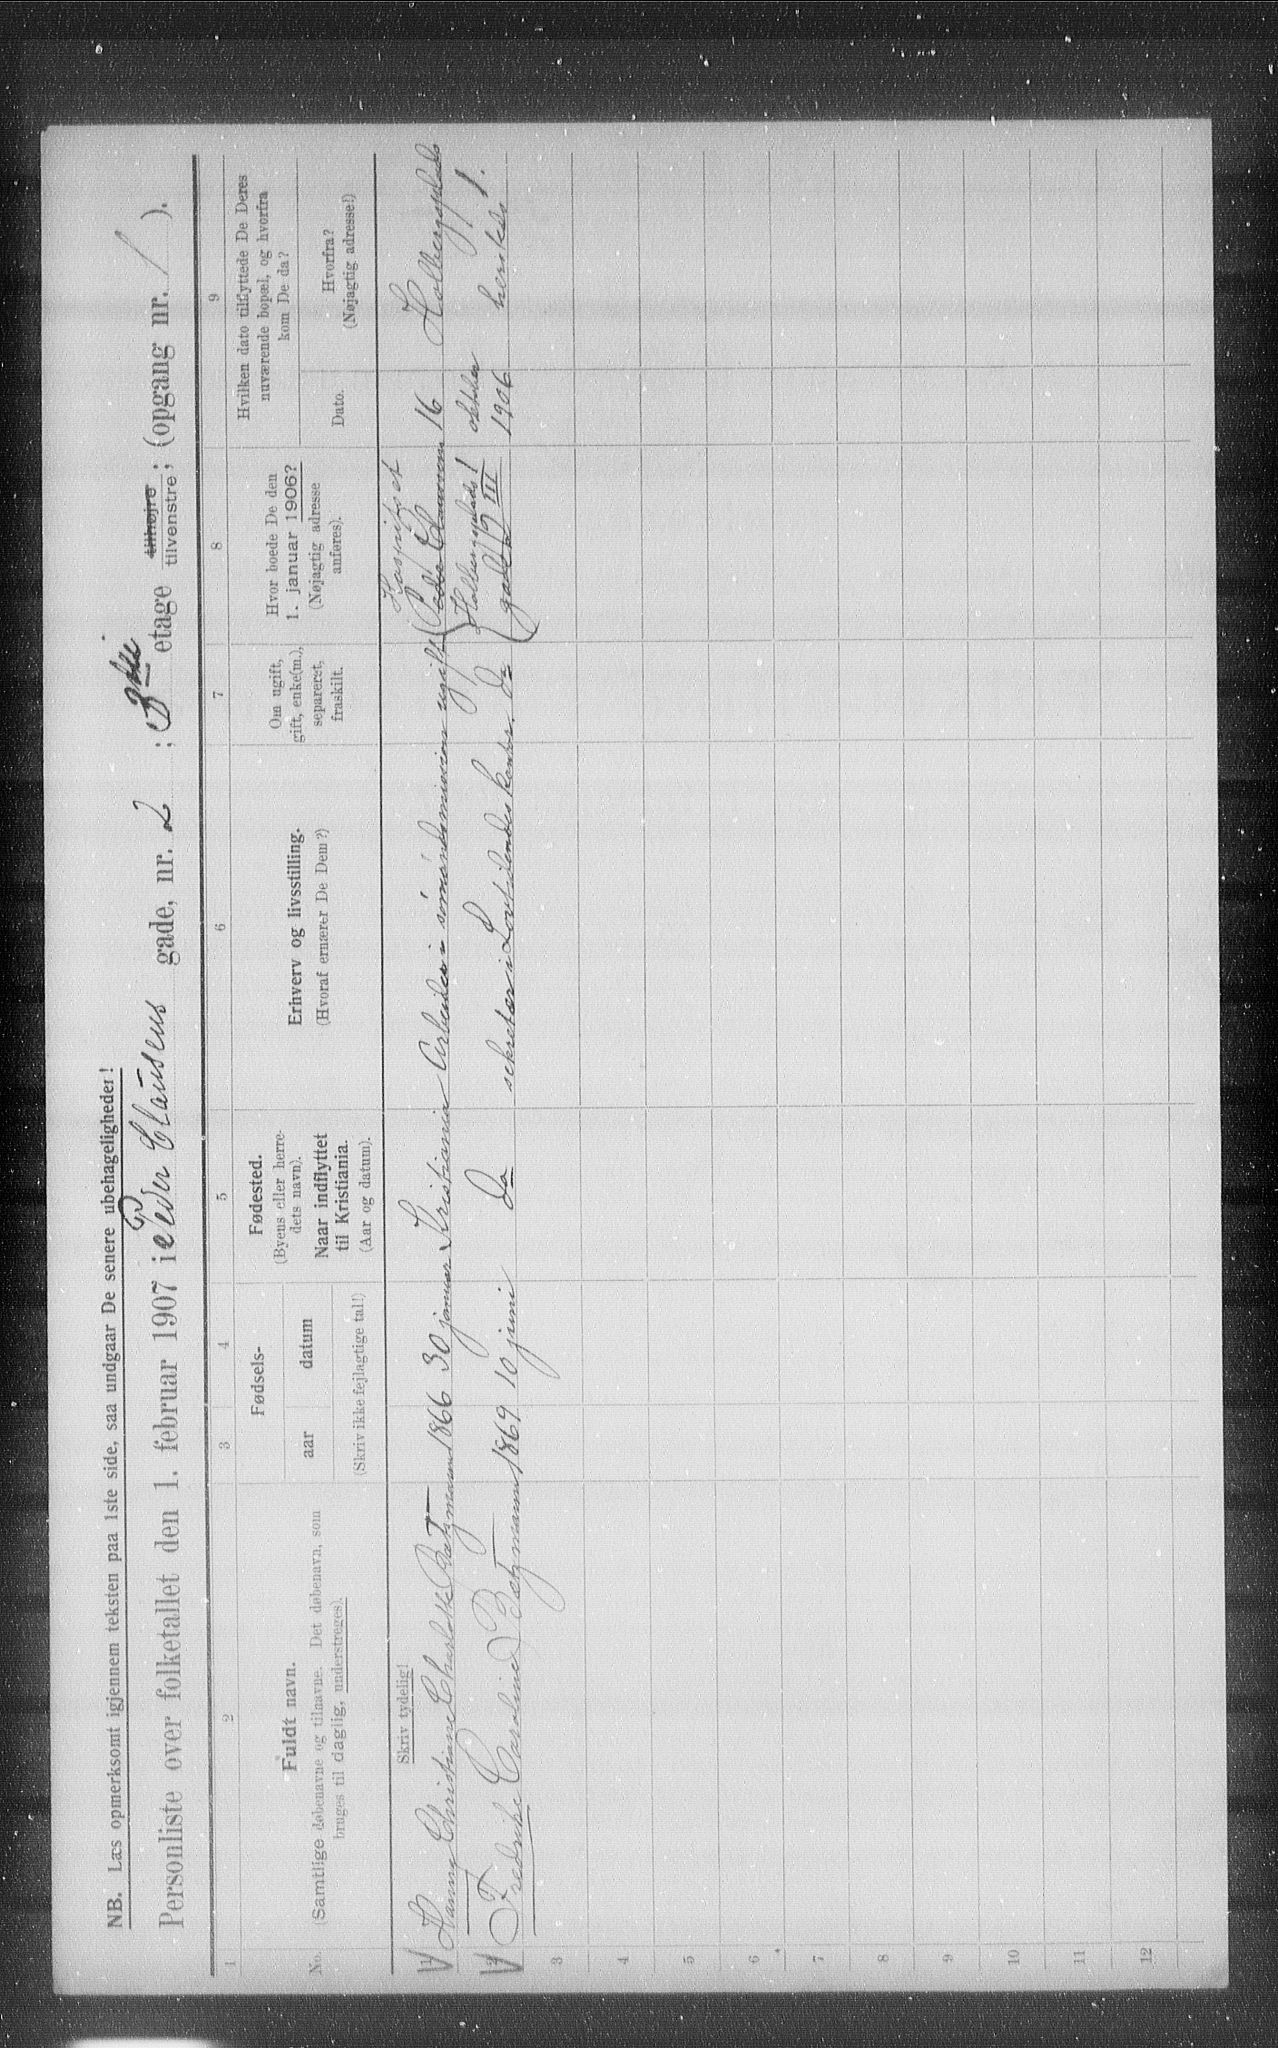 NB. Læs opmerksomt igjennem teksten paa 1ste side, saa undgaar De senere ubehageligheder!
Personliste over folketallet den 1. februar 1907 i Peder Clausens gade, nr. 2 ; 3die etage tilhøjre tilvenstre; (opgang nr. / ).
1 2 3 4 5 6 7 8 9
No.
Fuldt navn.
(Samtlige døbenavne og tilnavne. Det døbenavn, som
bruges til daglig, understreges).
Fødsels-
aar datum
(Skriv ikke fejlagtige tal!)
Fødested.
(Byens eller herre-
dets navn).
Naar indflyttet
til Kristiania.
(Aar og datum).
Erhverv og livsstilling.
(Hvoraf ernærer De Dem?)
Om ugift,
gift, enke(m.),
separeret,
fraskilt.
Hvor boede De den
1. januar 1906?
(Nøjagtig adresse
anføres).
Hvilken dato tilflyttede De Deres
nuværende bopæl, og hvorfra
kom De da?
Dato.
Hvorfra?
(Nøjagtig adresse!)
Skriv tydelig!
1 Hanna Christiane Charlotte Ratzmann 1866 30 januar Kristiania Arbeider i sømandsmission ugift
Peder Clausens
Holbergsplads 1
gade 2 III
16
oktober
1906
Holbergsplads
1.
2 Fredrikke Caroline Ratzmann 1869 10 juni Do sekretær i Do
3
4
5
6
7
8
9
10
11
12